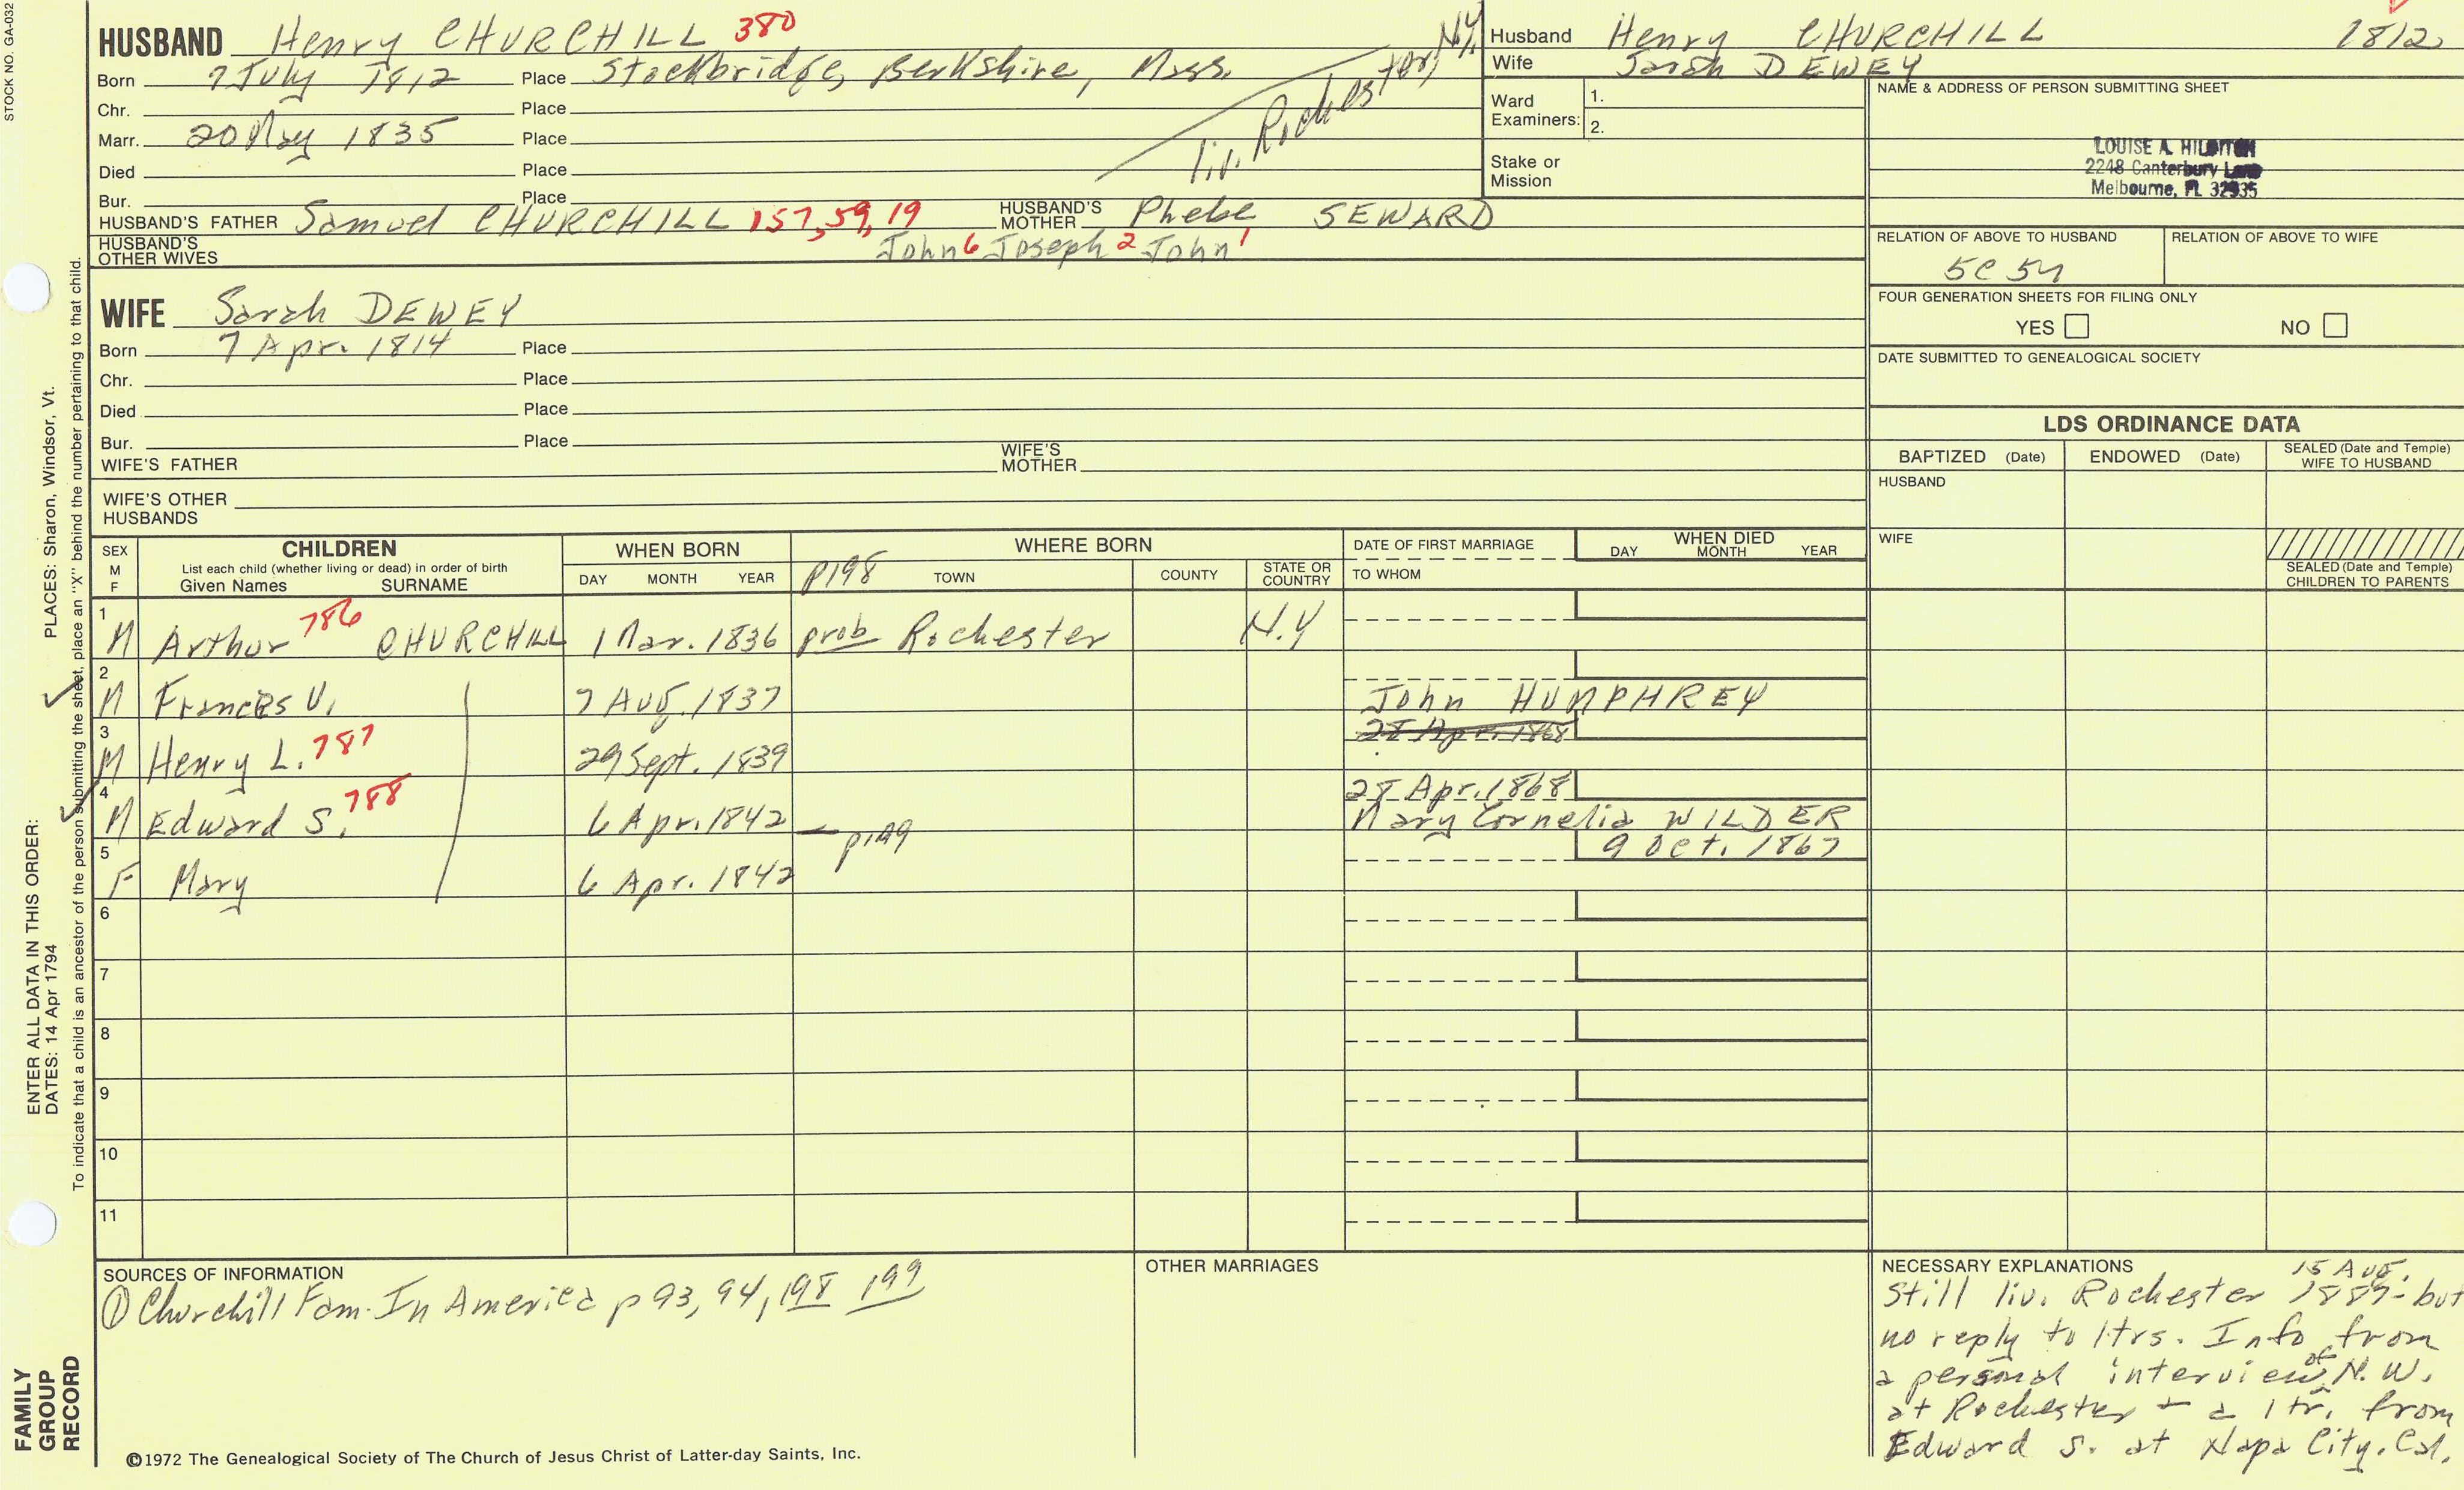 STOCK NO. GA-032
HUSBAND Henry CHURCHILL 380
Born 7 July 1812 Place Stockbridge, Berkshire, Mass.
Chr. Place
Marr. 20 May 1835 Place
Died Place
Bur. Place
liv. Rochester, N.Y.
HUSBAND'S FATHER Samuel CHURCHILL 157, 59, 19 HUSBAND'S MOTHER Phebe SEWARD
HUSBAND'S OTHER WIVES John 6 Joseph 2 John 1
WIFE Sarah DEWEY
Born 7 Apr. 1814 Place
Chr. Place
Died Place
Bur. Place
WIFE'S FATHER WIFE'S MOTHER
WIFE'S OTHER HUSBANDS
Husband Henry CHURCHILL 1812
Wife Sarah DEWEY
Ward Examiners: 1.
2.
Stake or Mission
NAME & ADDRESS OF PERSON SUBMITTING SHEET
LOUISE A. HILDITCH
2248 Canterbury Lane
Melbourne, FL 32935
RELATION OF ABOVE TO HUSBAND RELATION OF ABOVE TO WIFE
5C 5
FOUR GENERATION SHEETS FOR FILING ONLY
YES NO
DATE SUBMITTED TO GENEALOGICAL SOCIETY
LDS ORDINANCE DATA
BAPTIZED (Date) ENDOWED (Date) SEALED (Date and Temple) WIFE TO HUSBAND
HUSBAND
WIFE
SEALED (Date and Temple) CHILDREN TO PARENTS
SEX M F
CHILDREN
List each child (whether living or dead) in order of birth
Given Names SURNAME
WHEN BORN
DAY MONTH YEAR
WHERE BORN
p198 TOWN COUNTY STATE OR COUNTRY
DATE OF FIRST MARRIAGE
TO WHOM
WHEN DIED
DAY MONTH YEAR
1 M Arthur 786 CHURCHILL 1 Mar. 1836 prob Rochester N.Y
2 M Frances V. 7 Aug. 1837 John HUMPHREY
3 M Henry L. 787 29 Sept. 1839 28 Apr. 1868
4 M Edward S. 788 6 Apr. 1842 — p199 28 Apr. 1868 Mary Cornelia WILDER
5 F Mary 6 Apr. 1842 9 Oct. 1867
6
7
8
9
10
11
SOURCES OF INFORMATION
① Churchill Fam. In America p 93, 94, 198 199
OTHER MARRIAGES
NECESSARY EXPLANATIONS 15 Aug.
Still liv. Rochester 1887 - but
no reply to ltrs. Info from
a personal interview of N. W.
at Rochester + a ltr. from
Edward S. at Napa City, Cal.
©1972 The Genealogical Society of The Church of Jesus Christ of Latter-day Saints, Inc.
FAMILY
GROUP
RECORD
ENTER ALL DATA IN THIS ORDER:
DATES: 14 Apr 1794
PLACES: Sharon, Windsor, Vt.
To indicate that a child is an ancestor of the person submitting the sheet, place an "X" behind the number pertaining to that child.